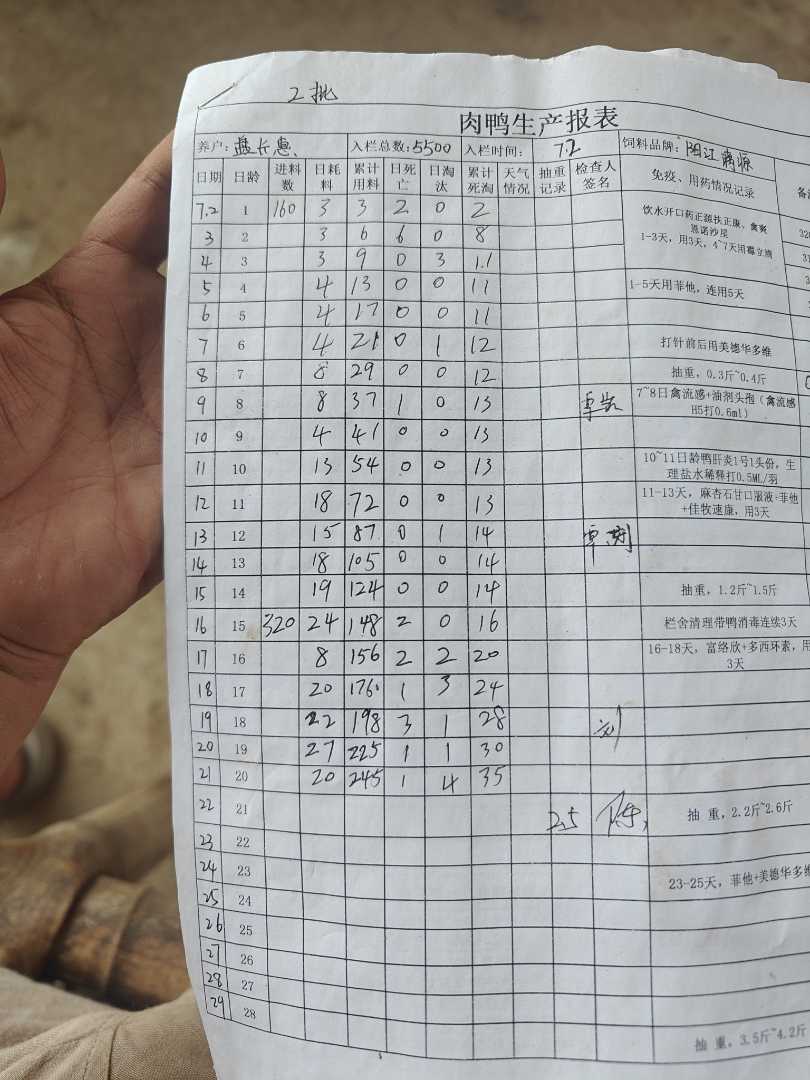 2批
肉鸭生产报表
养户: 入栏总数:5500 入栏时间: 7.2 饲料品牌:阳江
日期 日龄 进料数 日耗料 累计用料 日死亡 日淘汰 累计死淘 天气情况 抽重记录 检查人签名 免疫、用药情况记录
7.2 1 160 3 3 2 0 2 饮水开口药正源扶正康、禽爽 恩诺沙星 1-3天，用3天，4~7天用霉立清
3 2 3 6 6 0 8
4 3 3 9 0 3 11
5 4 4 13 0 0 11 1-5天用菲他，连用5天
6 5 4 17 0 0 11
7 6 4 21 0 1 12 打针前后用美德华多维
8 7 8 29 0 0 12 抽重，0.3斤~0.4斤
9 8 8 37 1 0 13 7~8日禽流感+油剂头孢（禽流感H5打0.6ml）
10 9 4 41 0 0 13
11 10 13 54 0 0 13 10~11日龄鸭肝炎1号1头份，生理盐水稀释打0.5ML/羽
12 11 18 72 0 0 13 11-13天，麻杏石甘口服液+菲他+佳牧速康，用3天
13 12 15 87 0 1 14
14 13 18 105 0 0 14
15 14 19 124 0 0 14 抽重，1.2斤~1.5斤
16 15 320 24 148 2 0 16 栏舍清理带鸭消毒连续3天
17 16 8 156 2 2 20 16-18天，富络欣+多西环素，用3天
18 17 20 176 1 3 24
19 18 22 198 3 1 28 刘
20 19 27 225 1 1 30
21 20 20 245 1 4 35
22 21 2.5 抽 重，2.2斤~2.6斤
23 22
24 23 23-25天，菲他+美德华多维
25 24
26 25
27 26
28 27
29 28 抽 重，3.5斤~4.2斤